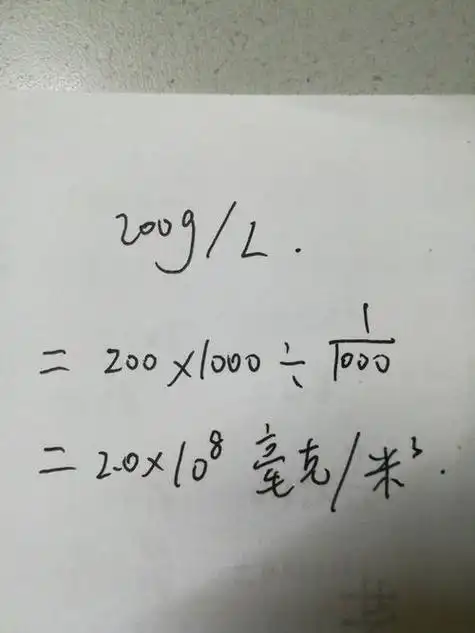 200g/L.
= 200×1000÷1/1000
= 2.0×10⁸ 毫克/米³.